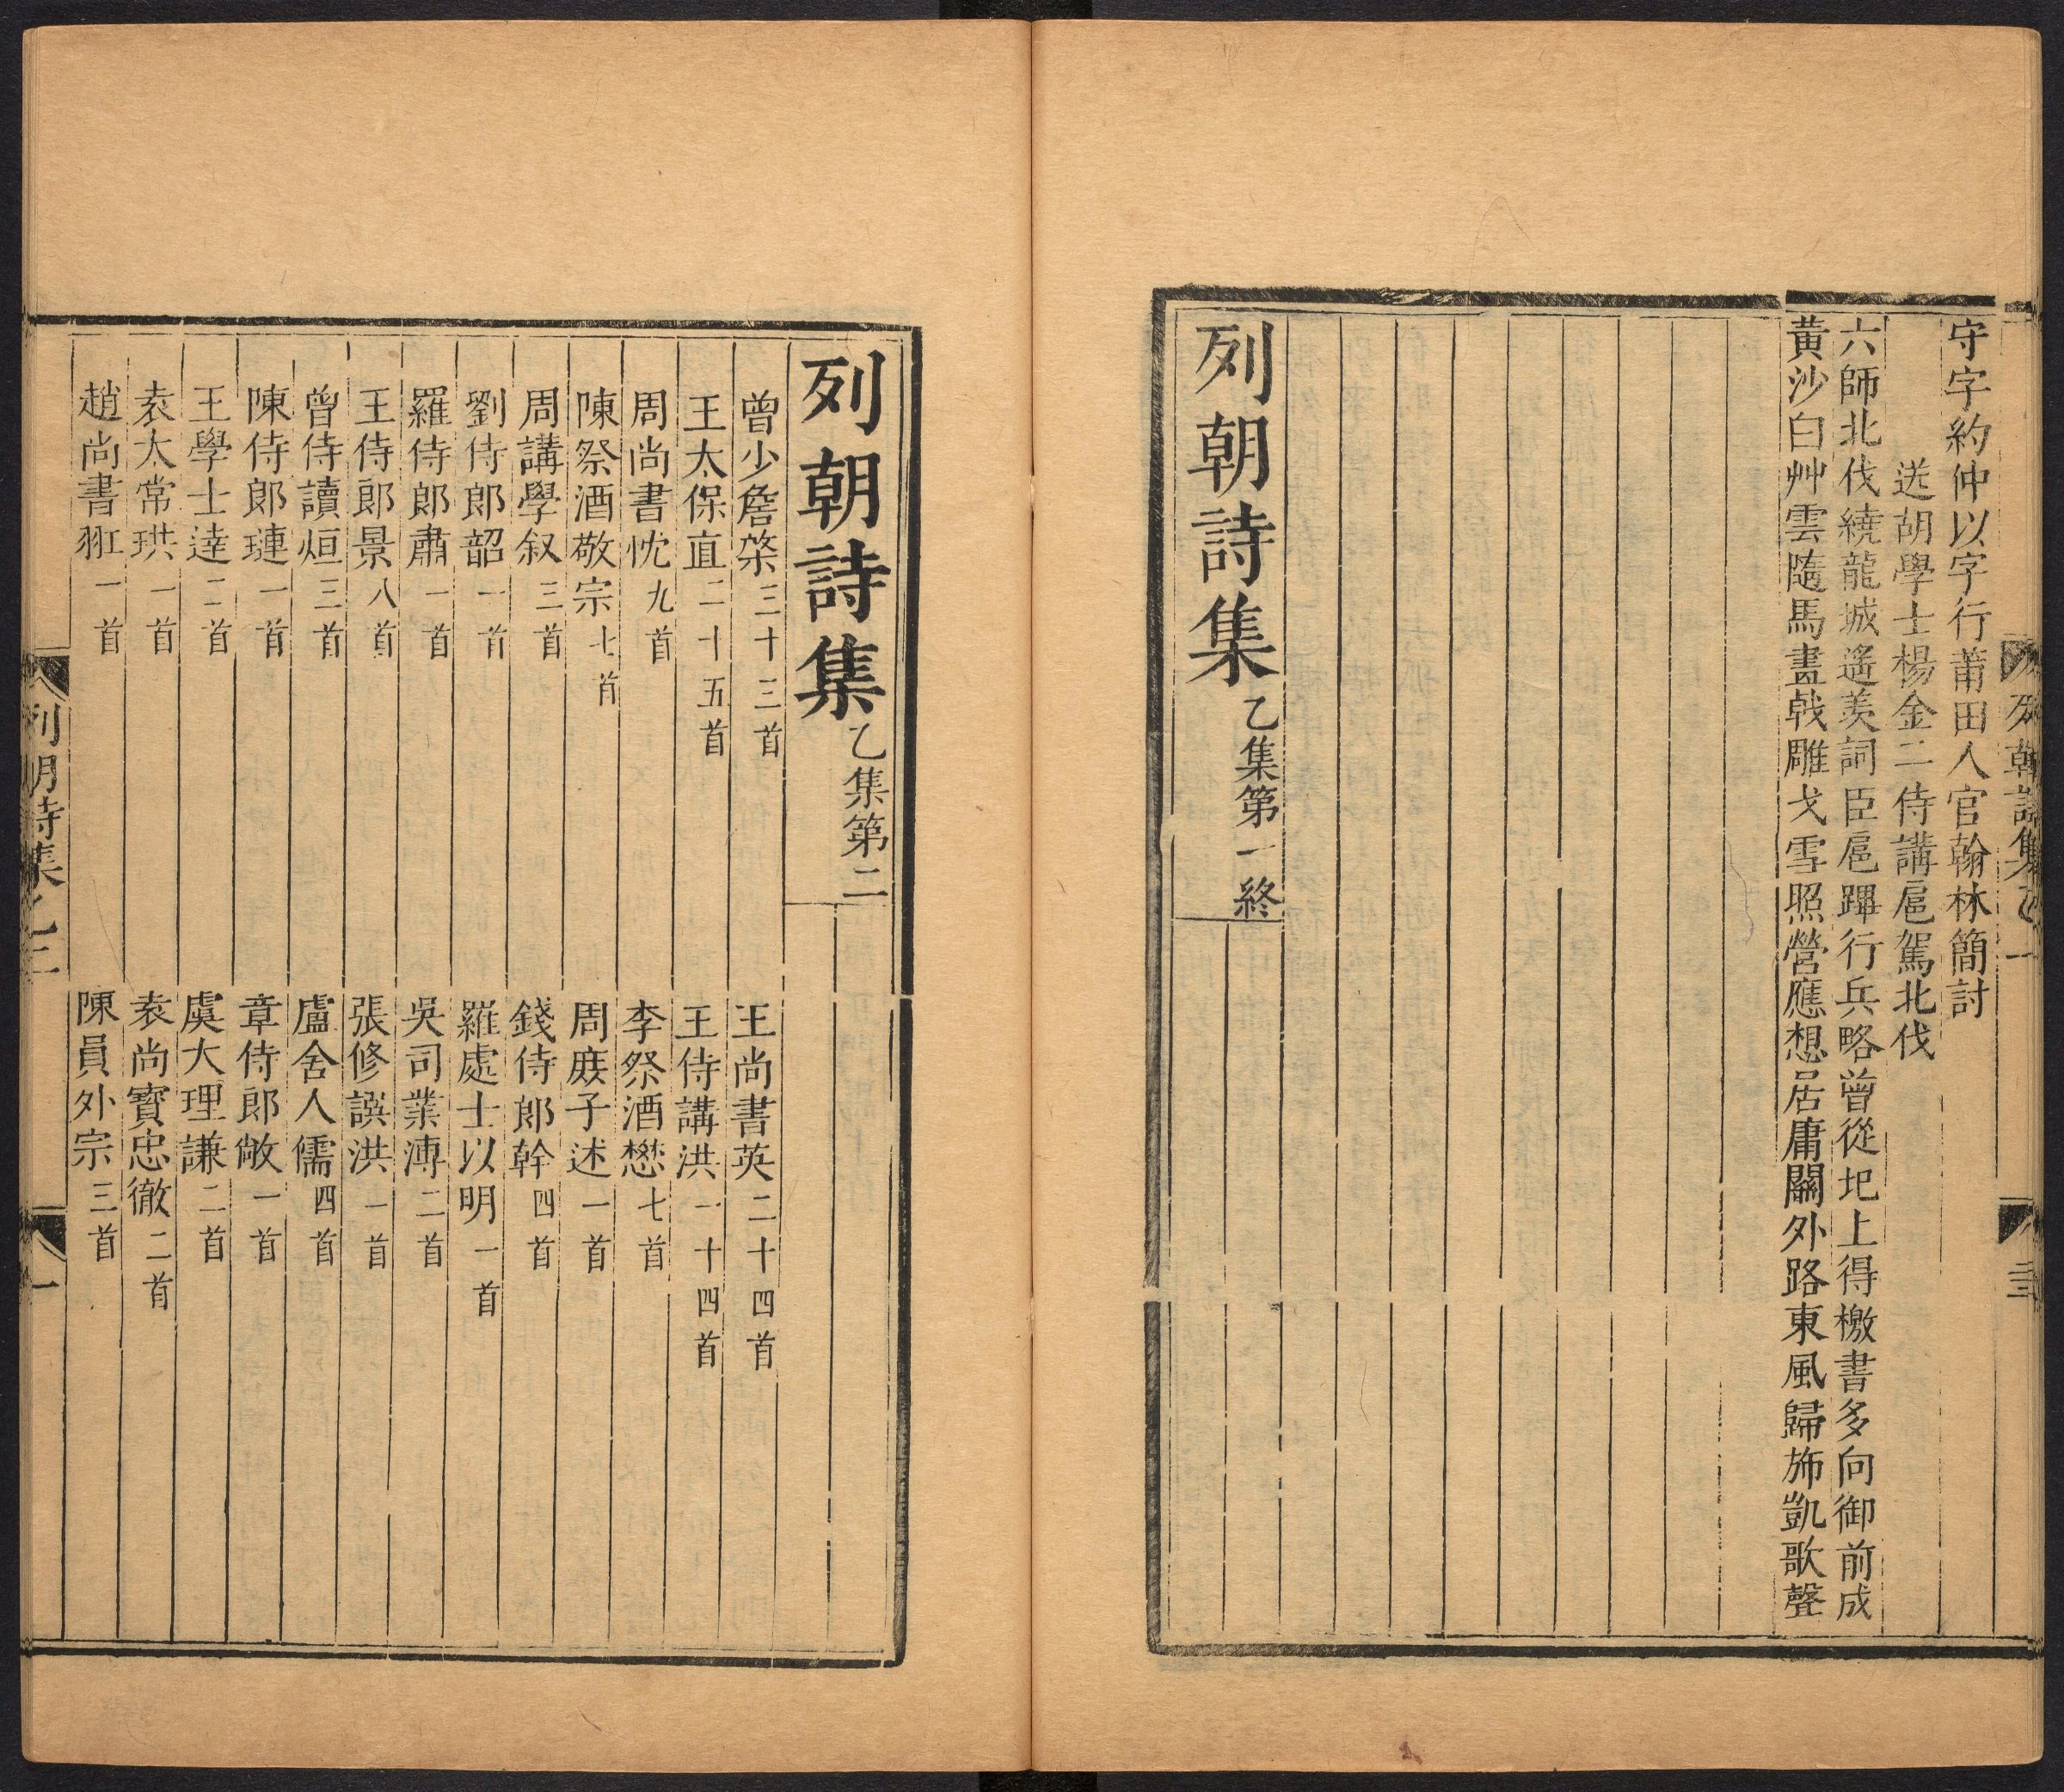 守字約仲以字行莆田人官翰林簡討
送胡學士楊金二侍講扈駕北伐
六師北伐繞龍城遙羨詞臣扈蹕行兵略曾從圯上得檄書多向御前成
黃沙白艸雲隨馬畫戟雕戈雪照營應想居庸關外路東風歸斾凱歌聲
列朝詩集乙集第一終
列朝詩集乙集第二
曾少詹棨三十三首 王尚書英二十四首
王太保直二十五首 王侍講洪一十四首
周尚書忱九首 李祭酒懋七首
陳祭酒敬宗七首 周庶子述一首
周講學叙三首 錢侍郎幹四首
劉侍郎韶一首 羅處士以明一首
羅侍郎肅一首 吳司業溥二首
王侍郎景八首 張修譔洪一首
曾侍讀烜三首 盧舍人儒四首
陳侍郎璉一首 章侍郎敞一首
王學士達二首 虞大理謙二首
袁太常珙一首 袁尚寶忠徹二首
趙尚書羾一首 陳員外宗三首
列朝詩集乙二 一